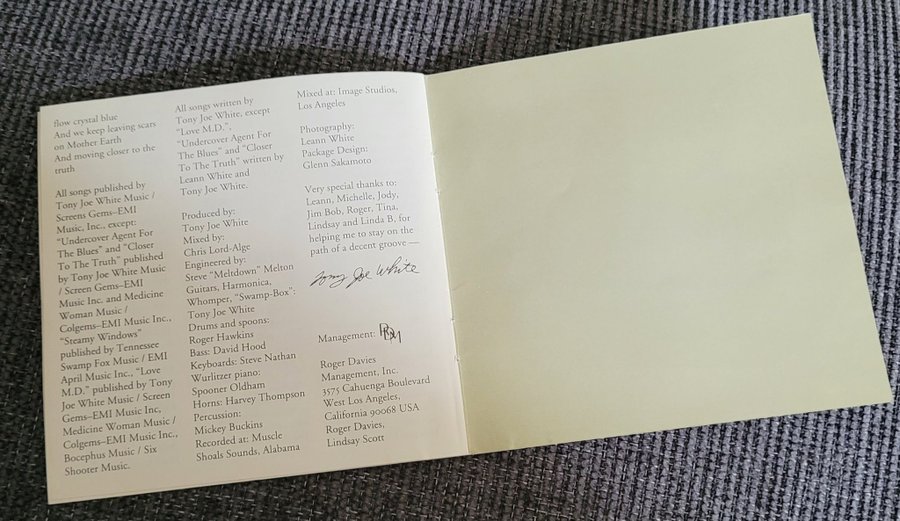 flow crystal blue
And we keep leaving scars
on Mother Earth
And moving closer to the
truth
All songs published by
Tony Joe White Music /
Screens Gems–EMI
Music, Inc., except:
“Undercover Agent For
The Blues” and “Closer
To The Truth” published
by Tony Joe White Music
/ Screen Gems–EMI
Music Inc. and Medicine
Woman Music /
Colgems–EMI Music Inc.,
“Steamy Windows”
published by Tennessee
Swamp Fox Music / EMI
April Music Inc., “Love
M.D.” published by Tony
Joe White Music / Screen
Gems–EMI Music Inc,
Medicine Woman Music /
Colgems–EMI Music Inc.,
Bocephus Music / Six
Shooter Music.
All songs written by
Tony Joe White, except
“Love M.D.”,
“Undercover Agent For
The Blues” and “Closer
To The Truth” written by
Leann White and
Tony Joe White.
Produced by:
Tony Joe White
Mixed by:
Chris Lord-Alge
Engineered by:
Steve “Meltdown” Melton
Guitars, Harmonica,
Whomper, “Swamp-Box”:
Tony Joe White
Drums and spoons:
Roger Hawkins
Bass: David Hood
Keyboards: Steve Nathan
Wurlitzer piano:
Spooner Oldham
Horns: Harvey Thompson
Percussion:
Mickey Buckins
Recorded at: Muscle
Shoals Sounds, Alabama
Mixed at: Image Studios,
Los Angeles
Photography:
Leann White
Package Design:
Glenn Sakamoto
Very special thanks to:
Leann, Michelle, Jody,
Jim Bob, Roger, Tina,
Lindsay and Linda B, for
helping me to stay on the
path of a decent groove —
Tony Joe White
Management: RDM
Roger Davies
Management, Inc.
3575 Cahuenga Boulevard
West Los Angeles,
California 90068 USA
Roger Davies,
Lindsay Scott